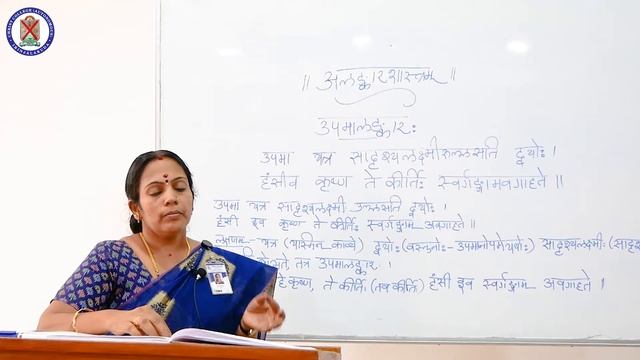 ॥ अलङ्कारशास्त्रम् ॥
उपमालङ्कारः
उपमा यत्र सादृश्यलक्ष्मीरुल्लसति द्वयोः ।
हंसीव कृष्ण ते कीर्तिः स्वर्गङ्गामवगाहते ॥
उपमा यत्र सादृश्यलक्ष्मी उल्लसति द्वयोः ।
हंसी इव कृष्ण ते कीर्तिः स्वर्गङ्गाम् अवगाहते ॥
लक्षणम् - यत्र (यस्मिन् काव्ये) द्वयोः (वस्तुनोः - उपमानोपमेययोः) सादृश्यलक्ष्मीः
तत्र उपमालङ्कारः ।
हे कृष्ण, ते कीर्तिः (तव कीर्तिः) हंसी इव स्वर्गङ्गाम् अवगाहते ।